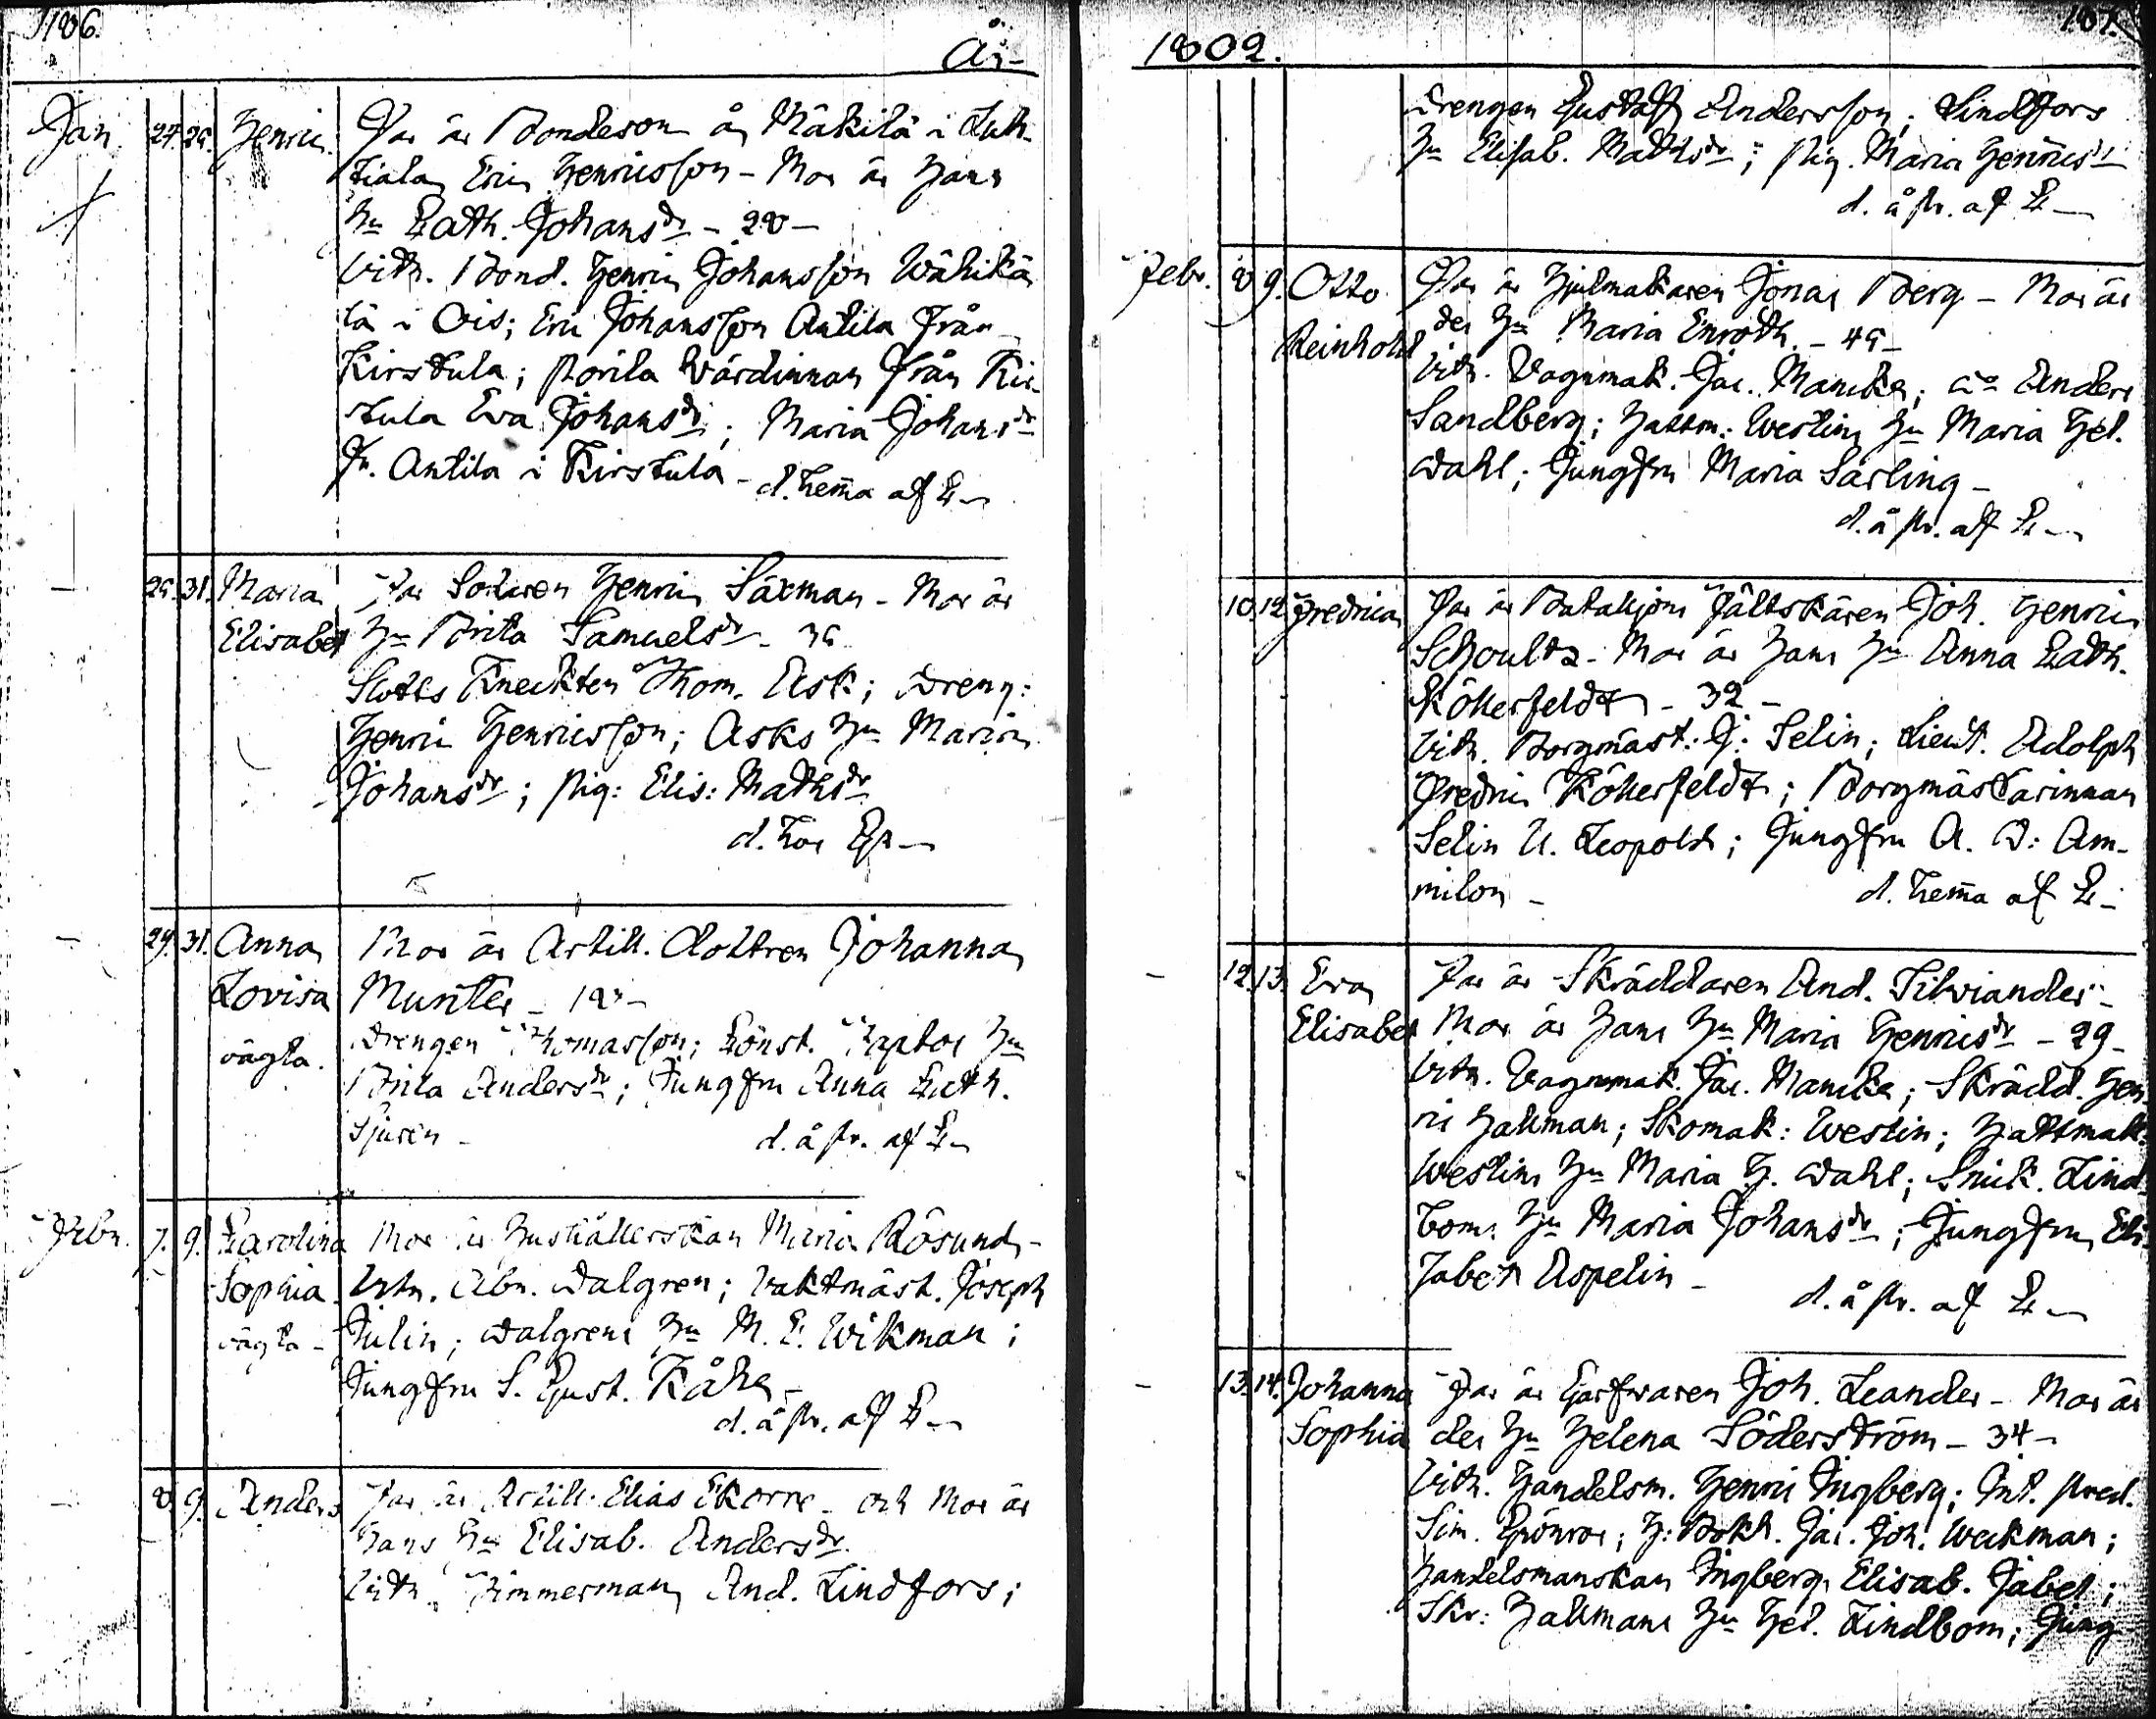 186.
År
Jan. 24. 25. Henric. Far är Bondeson å Mäkilä i Luh-
tiala Eric Henricsson - Mor är hans
hu Cath. Johansdr - 28 -
Vittn. Bond. Henric Johansson Wähikä
lä i Ois; Eric Johansson Antila från
Kirstula; Borila Värdinnan från Kir-
stula Eva Johansdr; Maria Johansdr
fr. Antila i Kirstula - d. hema af
25. 31. Maria Far Soldaten Henric Säxman - Mor är
Elisabet hu Brita Samuelsdr -
Slotts Kneckten Thom. Ask; Dreng:
Henric Henricsson; Asks hu Maria
Johansdr; pig: Elis: Mathsdr
d. hos
29. 31. Anna Mor är Artill. dottren Johanna
Lovisa Munter -
oägta. Drengen Thomasson; Const. hu
Brita Andersdr; Jungfru Anna Cath.
Sjuren - d. å pr. af
Febr. 7. 9. Carolina Mor är Hushållerskan Maria Rösund -
Sophia Vittn. Abr. Dalgren; Vaktmäst. Joseph
oägta - Julin; Dalgrens hu M. C. Wikman;
Jungfru S. Gust. Kåhe -
d. å pr. af
8. 9. Anders Far är Artill. Elias Ekorre - och Mor är
hans hu Elisab. Andersdr.
Vittn. Timmerman And. Lindfors;
187.
1802.
Drengen Gustaff Andersson; Lindfors
hu Elisab. Mathsdr; pig. Maria Henricsdr
d. å pr. af
Febr. 8 9. Otto Far är Hjulmakaren Jonas Berg - Mor är
Reinhold des hu Maria Enroth. - 45 -
Vittn. Vagnmak. Jac. Mancke; Anders
Sandberg; Hattm: Westins hu Maria Hel.
Dahl; Jungfru Maria Sarling -
d. å pr. af
10. 12. Fredrica Far är Bataljons Fältskären Joh. Henric
Schoultz - Mor är hans hu Anna Cath.
Köllerfeldt - 32 -
Vittn. Borgmäst: J: Selin; Lieut. Adolph
Fredric Köllerfeldt; Borgmästarinnan
Selin U. Leopold; Jungfru A. D: Am-
milon - d. hema af
12. 13. Eva Far är Skräddaren And. Silviander -
Elisabet Mor är hans hu Maria Henricsdr - 29 -
Vittn. Vagnmak. Jac. Mancke; Skrädd. Hen-
ric Hallman; Skomak: Westin; Hattmak:
Westins hu Maria H. Dahl; Snick. Lind
boms hu Maria Johansdr; Jungfru Eli-
sabet Aspelin -
d. å pr. af
13. 14. Johanna Far är Garfvaren Joh. Leander - Mor är
Sophia des hu Helena Söderström - 34 -
Vittn. Handelsm. Henric Ingberg; Int. pred.
Sim. Grönroos; H: Bokh. Jac. Joh. Weckman;
Handelsmanskan Ingberg Elisab. Jabel;
Skr: Hallmans hu Hel. Lindbom; Jung